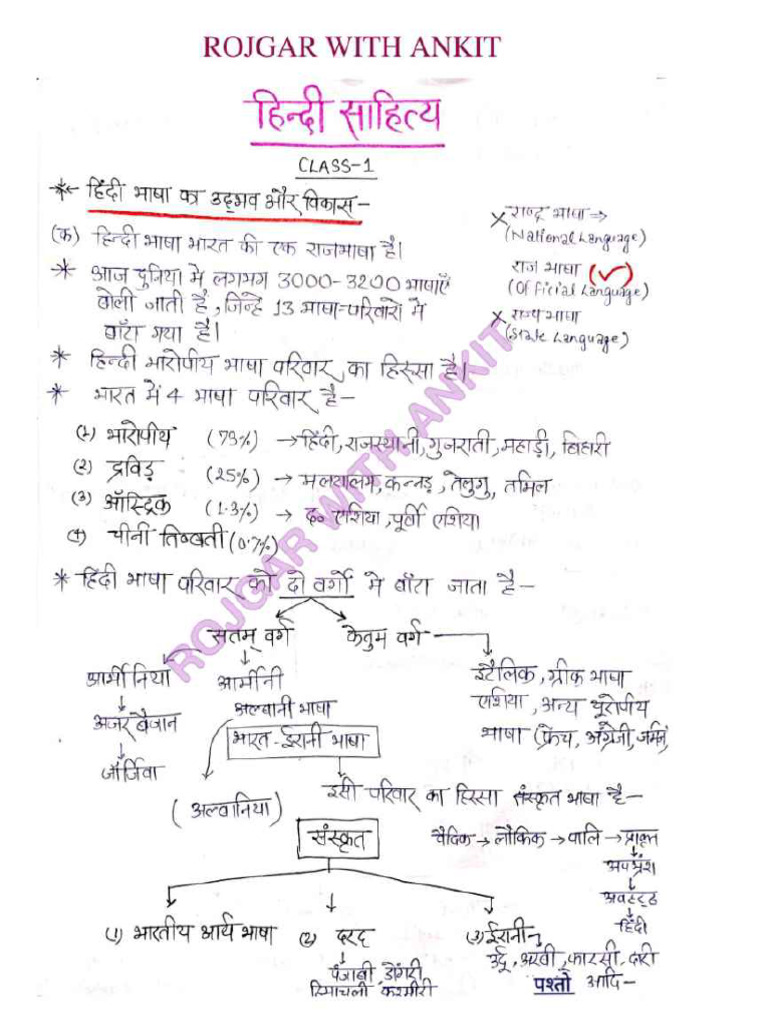 ROJGAR WITH ANKIT
हिन्दी साहित्य
CLASS-1
* हिंदी भाषा का उद्भव और विकास -
(क) हिन्दी भाषा भारत की एक राजभाषा है।
* आज दुनिया मे लगभग 3000-3200 भाषाएँ
बोली जाती है, जिन्हे 13 भाषा-परिवारो मे
बाँटा गया है।
× राष्ट्र भाषा ⇒
(National Language)
राज भाषा (✓)
(Official Language)
× राज्य भाषा
(State Language)
* हिन्दी भारोपीय भाषा परिवार का हिस्सा है।
* भारत में 4 भाषा परिवार है -
(1) भारोपीय (73%) → हिंदी, राजस्थानी, गुजराती, महाड़ी, बिहारी
(2) द्रविड़ (25%) → मलयालम, कन्नड़, तेलुगु, तमिल
(3) ऑस्ट्रिक (1.3%) → द० एशिया, पूर्वी एशिया
(4) चीनी तिब्बती (0.7%)
* हिंदी भाषा परिवार को दो वर्गो मे बाँटा जाता है -
सतम् वर्ग केतुम वर्ग
आर्मीनिया
↓
अजर बैजान
↓
जॉर्जिया
आर्मीनी
अल्बानी भाषा
भारत-ईरानी भाषा
(अल्वानिया)
इटैलिक, ग्रीक भाषा
एशिया, अन्य यूरोपीय
भाषा (फ्रेंच, अंग्रेजी, जर्मन)
इसी परिवार का हिस्सा संस्कृत भाषा है -
संस्कृत
वैदिक → लौकिक → पालि → प्राकृत
↓
अपभ्रंश
↓
अवहट्ठ
↓
हिंदी
(1) भारतीय आर्य भाषा (2) दरद (3) ईरानी
पंजाबी, डोंगरी,
हिमाचली कश्मीरी
उर्दू, अरबी, फारसी, दारी
पश्तो आदि -
ROJGAR WITH ANKIT